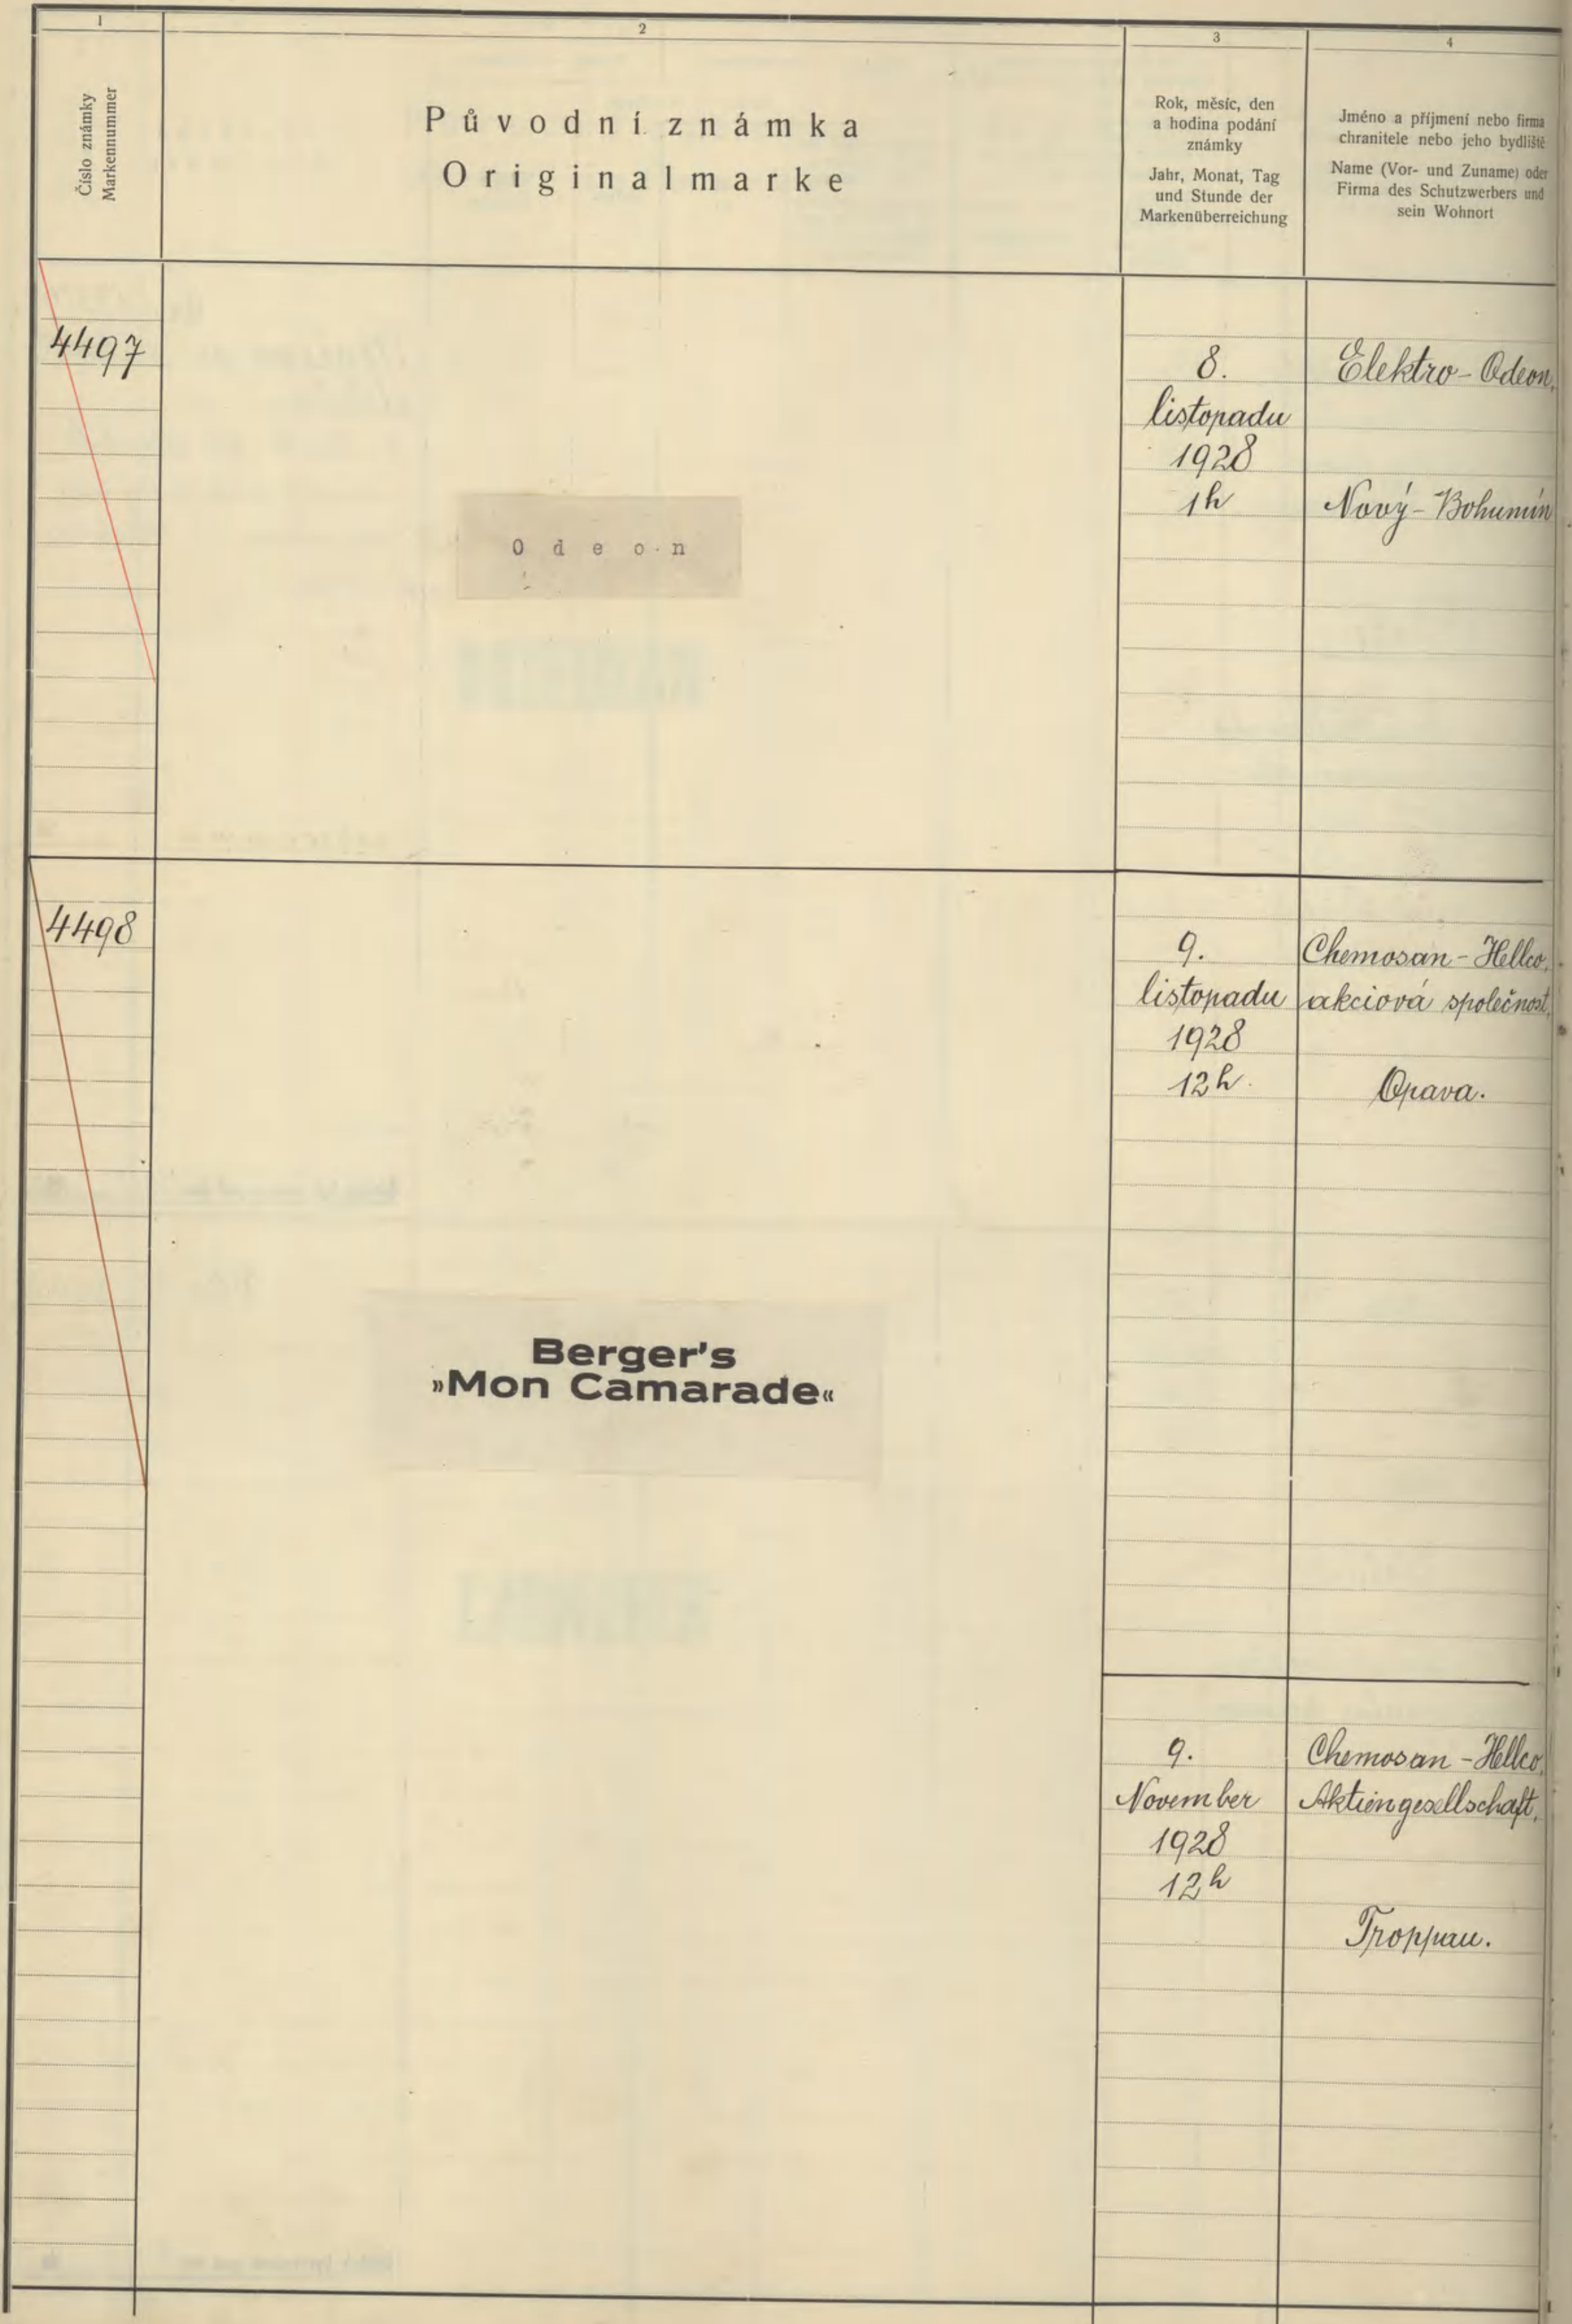 1
2
3
4
Číslo známky
Markennummer
Původní známka
Originalmarke
Rok, měsíc, den
a hodina podání
známky
Jahr, Monat, Tag
und Stunde der
Markenüberreichung
Jméno a příjmení nebo firma
chranitele nebo jeho bydliště
Name (Vor- und Zuname) oder
Firma des Schutzwerbers und
sein Wohnort
4497
Odeon
8.
listopadu
1928
1h
Elektro-Odeon,
Nový-Bohumín
4498
Berger's
»Mon Camarade«
9.
listopadu
1928
12h.
Chemosan-Hellco,
akciová společnost,
Opava.
9.
November
1928
12h
Chemosan-Hellco,
Aktiengesellschaft,
Troppau.